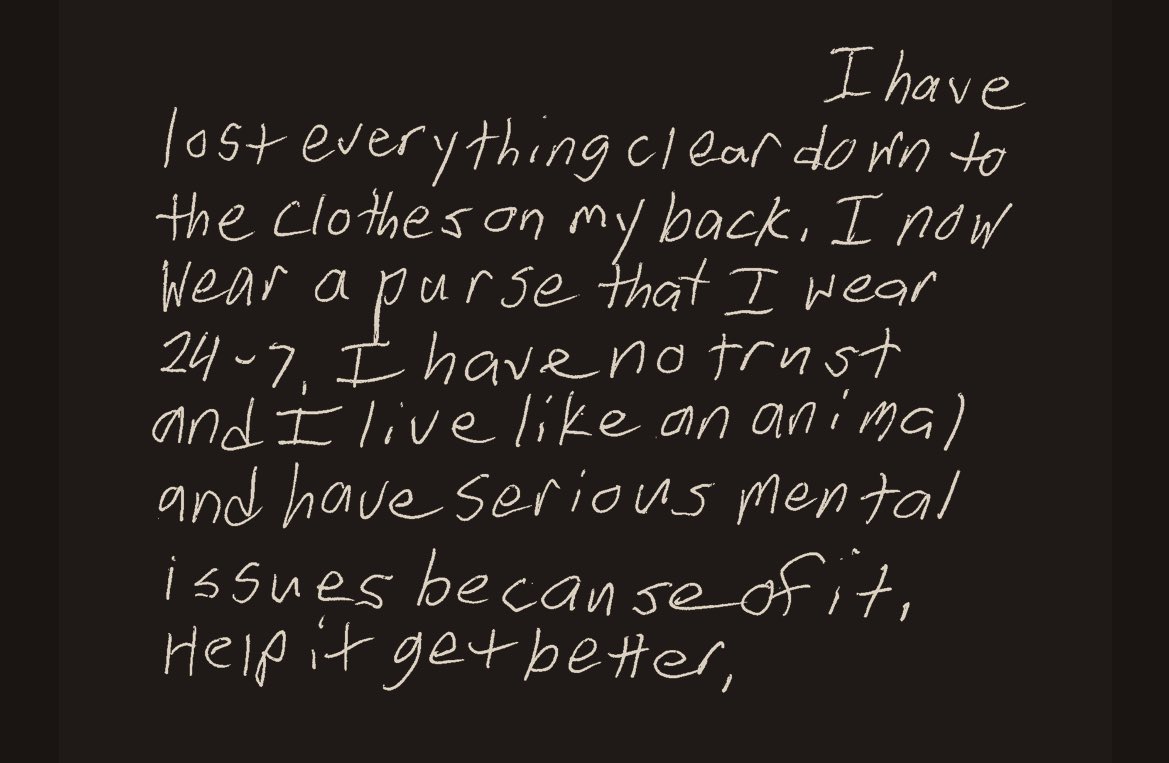 I have
lost everything clear down to
the clothes on my back. I now
wear a purse that I wear
24-7. I have no trust
and I live like an animal
and have serious mental
issues because of it.
Help it get better.